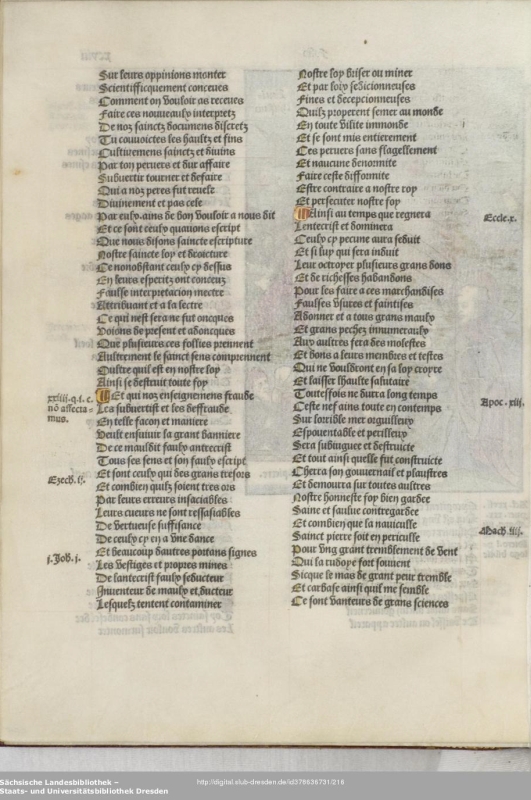 Sur leurs oppinions monter
Scientifficquement conceues
Comment on vouloit as receues
Faire ces nouueaulx interpretz
De noz sainctz documens discretz
Tu conuoictes les haultz et fins
Cultiuemens sainctz et diuins
Par ton peruers et dur affaire
Subuertir tourner et defaire
Qui a noz peres fut reuele
Diuinement et pas cele
Par eulx ains de bon vouloir a nous dit
Et ce sont ceulx quauons escript
Que nous disons saincte escripture
Nostre saincte loy et droicture
Ce nonobstant ceulx cy dessus
En leurs esperitz ont conceuz
Faulse interpretacion mectre
Attribuant et a la lectre
Ce qui nest sera ne fut oncques
Voions de present et adoncques
Que plusieurs ces follies prennent
Aultrement le sainct sens comprennent
Oultre quil est en nostre loy
Ainsi se destruit toute foy
Et qui noz enseignemens fraude
Les subuertist et les deffraude
En telle facon et maniere
Veult ensuiuir la grant banniere
De ce mauldit faulx antrecrist
Tous ses sens et son faulx escript
Et sont ceulx qui des grans tresors
Et combien quilz soient tres ors
Par leurs erreurs insaciables
Leurs cueurs ne sont ressasiables
De vertueuse suffisance
De ceulx cy en a vne dance
Et beaucoup dautres portans signes
Les vestiges et propres mines
De lantecrist faulx seducteur
Inuenteur de maulx et ducteur
Lesquelz tentent contaminer
xxiiii.q.i.c.
nō affecta=
mus.
Ezech.ij.
j.Joh.j.
Nostre loy briser ou miner
Et par loix sedicionneuses
Fines et decepcionneuses
Quilz properent semer au monde
En toute vilite immonde
Et se sont mis entierement
Ces peruers sans flagellement
Et naucune denormite
Faire ceste difformite
Estre contraire a nostre roy
Et persecuter nostre foy
Ainsi au temps que regnera
Lentecrist et dominera
Ceulx cy pecune aura seduit
Et si luy qui sera induit
Leur octroyer plusieurs grans dons
Et de richesses habandons
Pour les faire a ces marchandises
Faulses vsures et faintises
Adonner et a tous grans maulx
Et grans pechez innumeraulx
Aux aultres sera des molestes
Et dons a leurs membres et testes
Qui ne vouldront en sa loy croyre
Et laisser lhaulte salutaire
Toutesfois ne dura long temps
Ceste nef ains toute en contemps
Sur lorrible mer orguilleux
Espouentable et perilleux
Sera subuguee et destruicte
Et tout ainsi quelle fut construicte
Cherra son gouuernail et plaustres
Et demourra sur toutes aultres
Nostre honneste foy bien gardee
Saine et saulue contregardee
Et combien que la nauiculle
Sainct pierre soit en periculle
Pour vng grant tremblement de vent
Qui la rudoye fort souuent
Sicque le mas de grant peur tremble
Et carbase ainsi quil me semble
Ce sont vanteurs de grans sciences
Eccle.x.
Apoc.xiij.
Math.iiij.
Sächsische Landesbibliothek –
Staats- und Universitätsbibliothek Dresden
http://digital.slub-dresden.de/id378636731/218